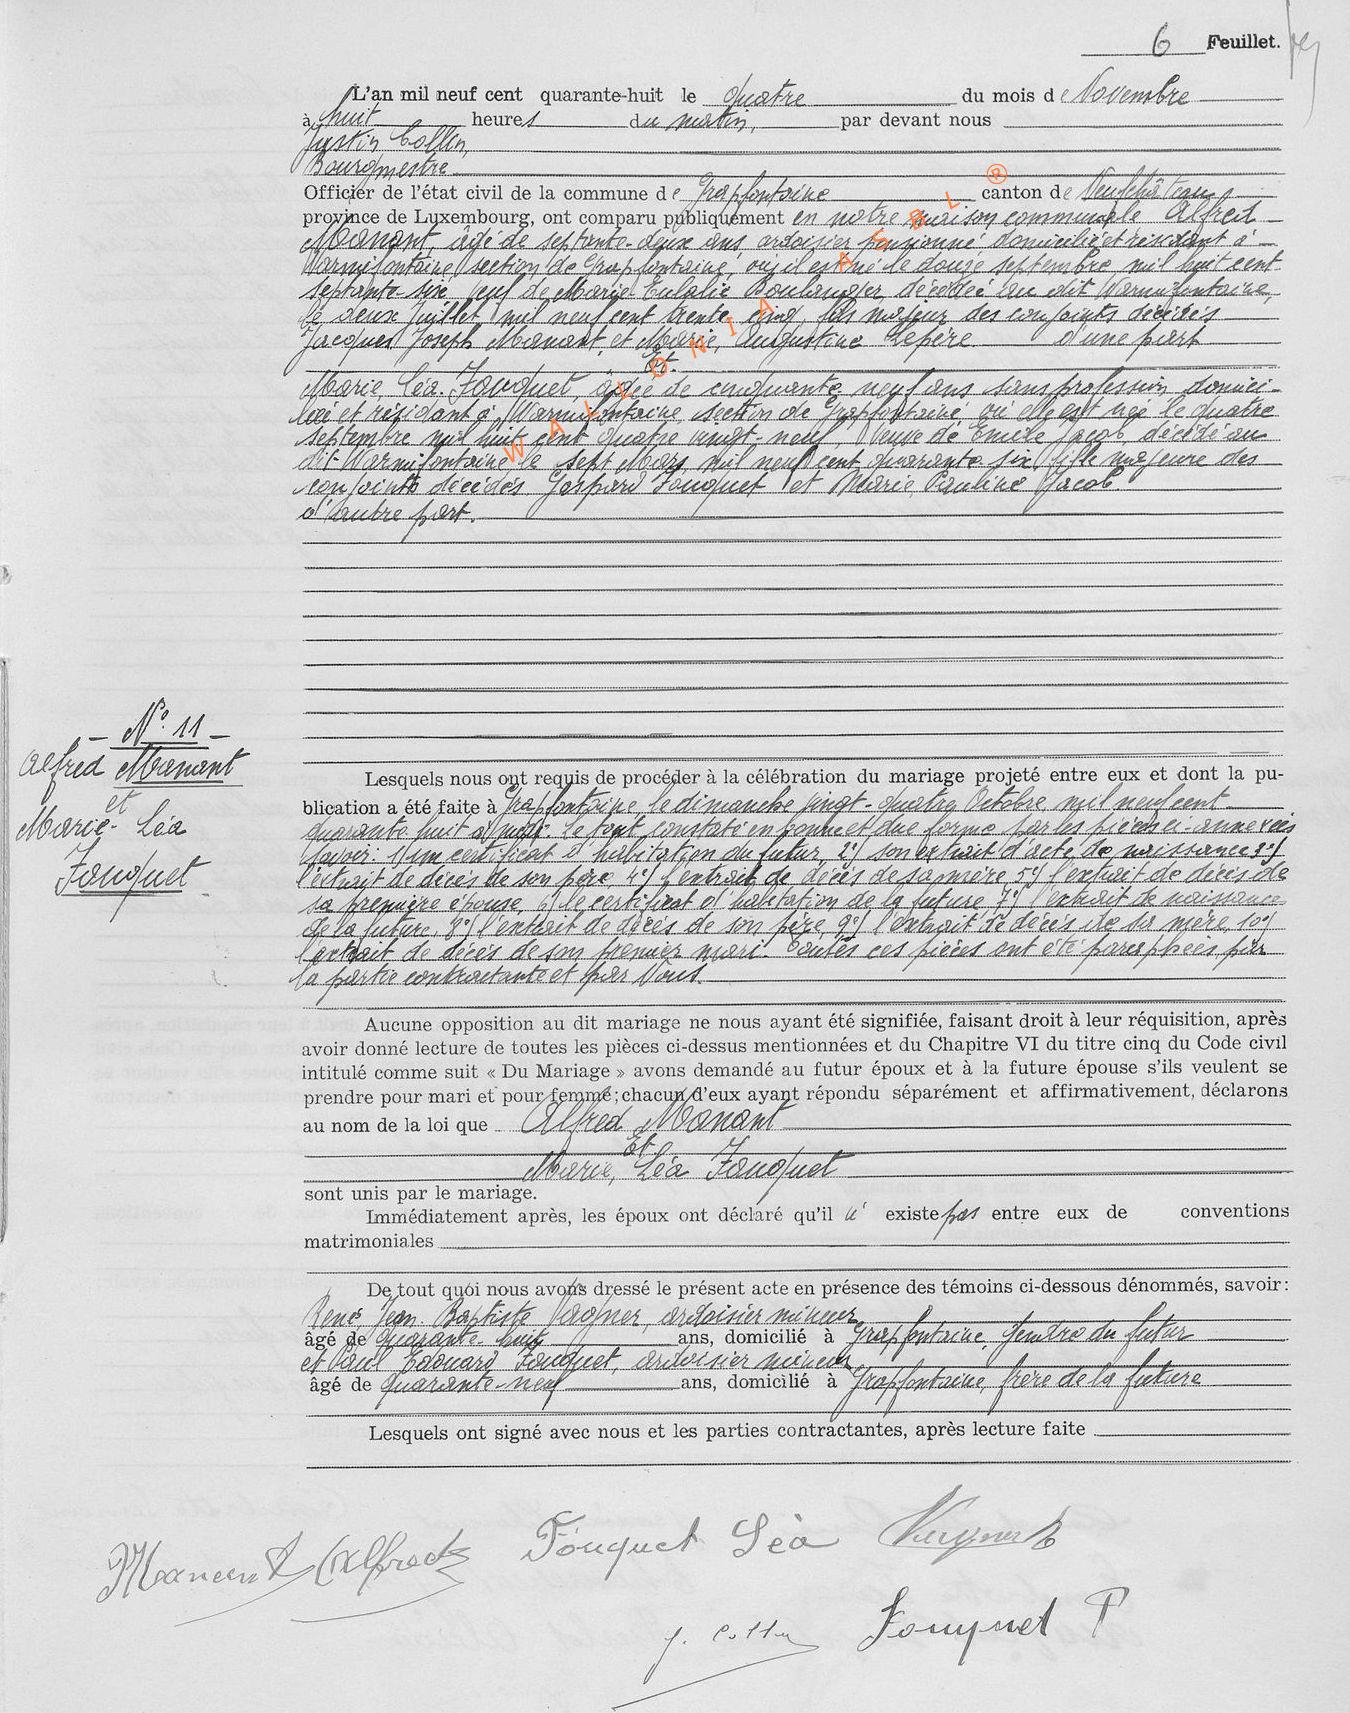 6 Feuillet.
L'an mil neuf cent quarante-huit le quatre du mois de Novembre
à huit heures du matin, par devant nous
Justin Collin,
Bourgmestre
Officier de l'état civil de la commune de Grapfontaine canton de Neufchâteau
province de Luxembourg, ont comparu publiquement en notre maison communale Alfred
Manant, âgé de septante-deux ans, ardoisier pensionné domicilié et résidant à
Warmifontaine section de Grapfontaine, où il est né le douze septembre mil huit cent
septante-six, veuf de Marie-Eulalie Boulanger, décédée au dit Warmifontaine,
le deux juillet mil neuf cent trente cinq, fils majeur des conjoints décédés
Jacques Joseph Manant, et Marie, Augustine Lepère d'une part
Et.
Marie, Léa. Fouquet, âgée de cinquante neuf ans sans profession, domici-
liée et résidant à Warmifontaine section de Grapfontaine, où elle est née le quatre
septembre mil huit cent quatre vingt-neuf, veuve de Emile Jacob décédé au
dit Warmifontaine le sept Mars mil neuf cent quarante six fille majeure des
conjoints décédés Gaspard Fouquet et Marie, Pauline Jacob
d'autre part.
N°. 11
Alfred Manant
et
Marie-Léa
Fouquet
Lesquels nous ont requis de procéder à la célébration du mariage projeté entre eux et dont la pu-
blication a été faite à Grapfontaine le dimanche vingt-quatre Octobre mil neuf cent
quarante huit à . Le tout constaté en bonne et due forme par les pièces ci-annexées
savoir: 1°/ un certificat d'habitation du futur, 2°/ son extrait d'acte de naissance 3°/
l'extrait de décès de son père, 4°/ l'extrait de décès de sa mère, 5°/ l'extrait de décès de
sa première épouse, 6°/ le certificat d'habitation de la future 7°/ l'extrait de naissance
de la future, 8°/ l'extrait de décès de son père, 9°/ l'extrait de décès de sa mère, 10°/
l'extrait de décès de son premier mari. Toutes ces pièces ont été paraphées par
la partie contractante et par Nous.
Aucune opposition au dit mariage ne nous ayant été signifiée, faisant droit à leur réquisition, après
avoir donné lecture de toutes les pièces ci-dessus mentionnées et du Chapitre VI du titre cinq du Code civil
intitulé comme suit « Du Mariage » avons demandé au futur époux et à la future épouse s'ils veulent se
prendre pour mari et pour femme; chacun d'eux ayant répondu séparément et affirmativement, déclarons
au nom de la loi que Alfred Manant
Et
Marie, Léa Fouquet
sont unis par le mariage.
Immédiatement après, les époux ont déclaré qu'il n' existe pas entre eux de conventions
matrimoniales
De tout quoi nous avons dressé le présent acte en présence des témoins ci-dessous dénommés, savoir:
René, Jean-Baptiste Vagner, ardoisier mineur
âgé de quarante-huit ans, domicilié à Grapfontaine, gendre du futur
et Paul Edouard Fouquet, ardoisier mineur
âgé de quarante-neuf ans, domicilié à Grapfontaine, frère de la future
Lesquels ont signé avec nous et les parties contractantes, après lecture faite
Manant Alfred Fouquet Léa
J. Collin Fouquet P
WALLONIA ASBL ®